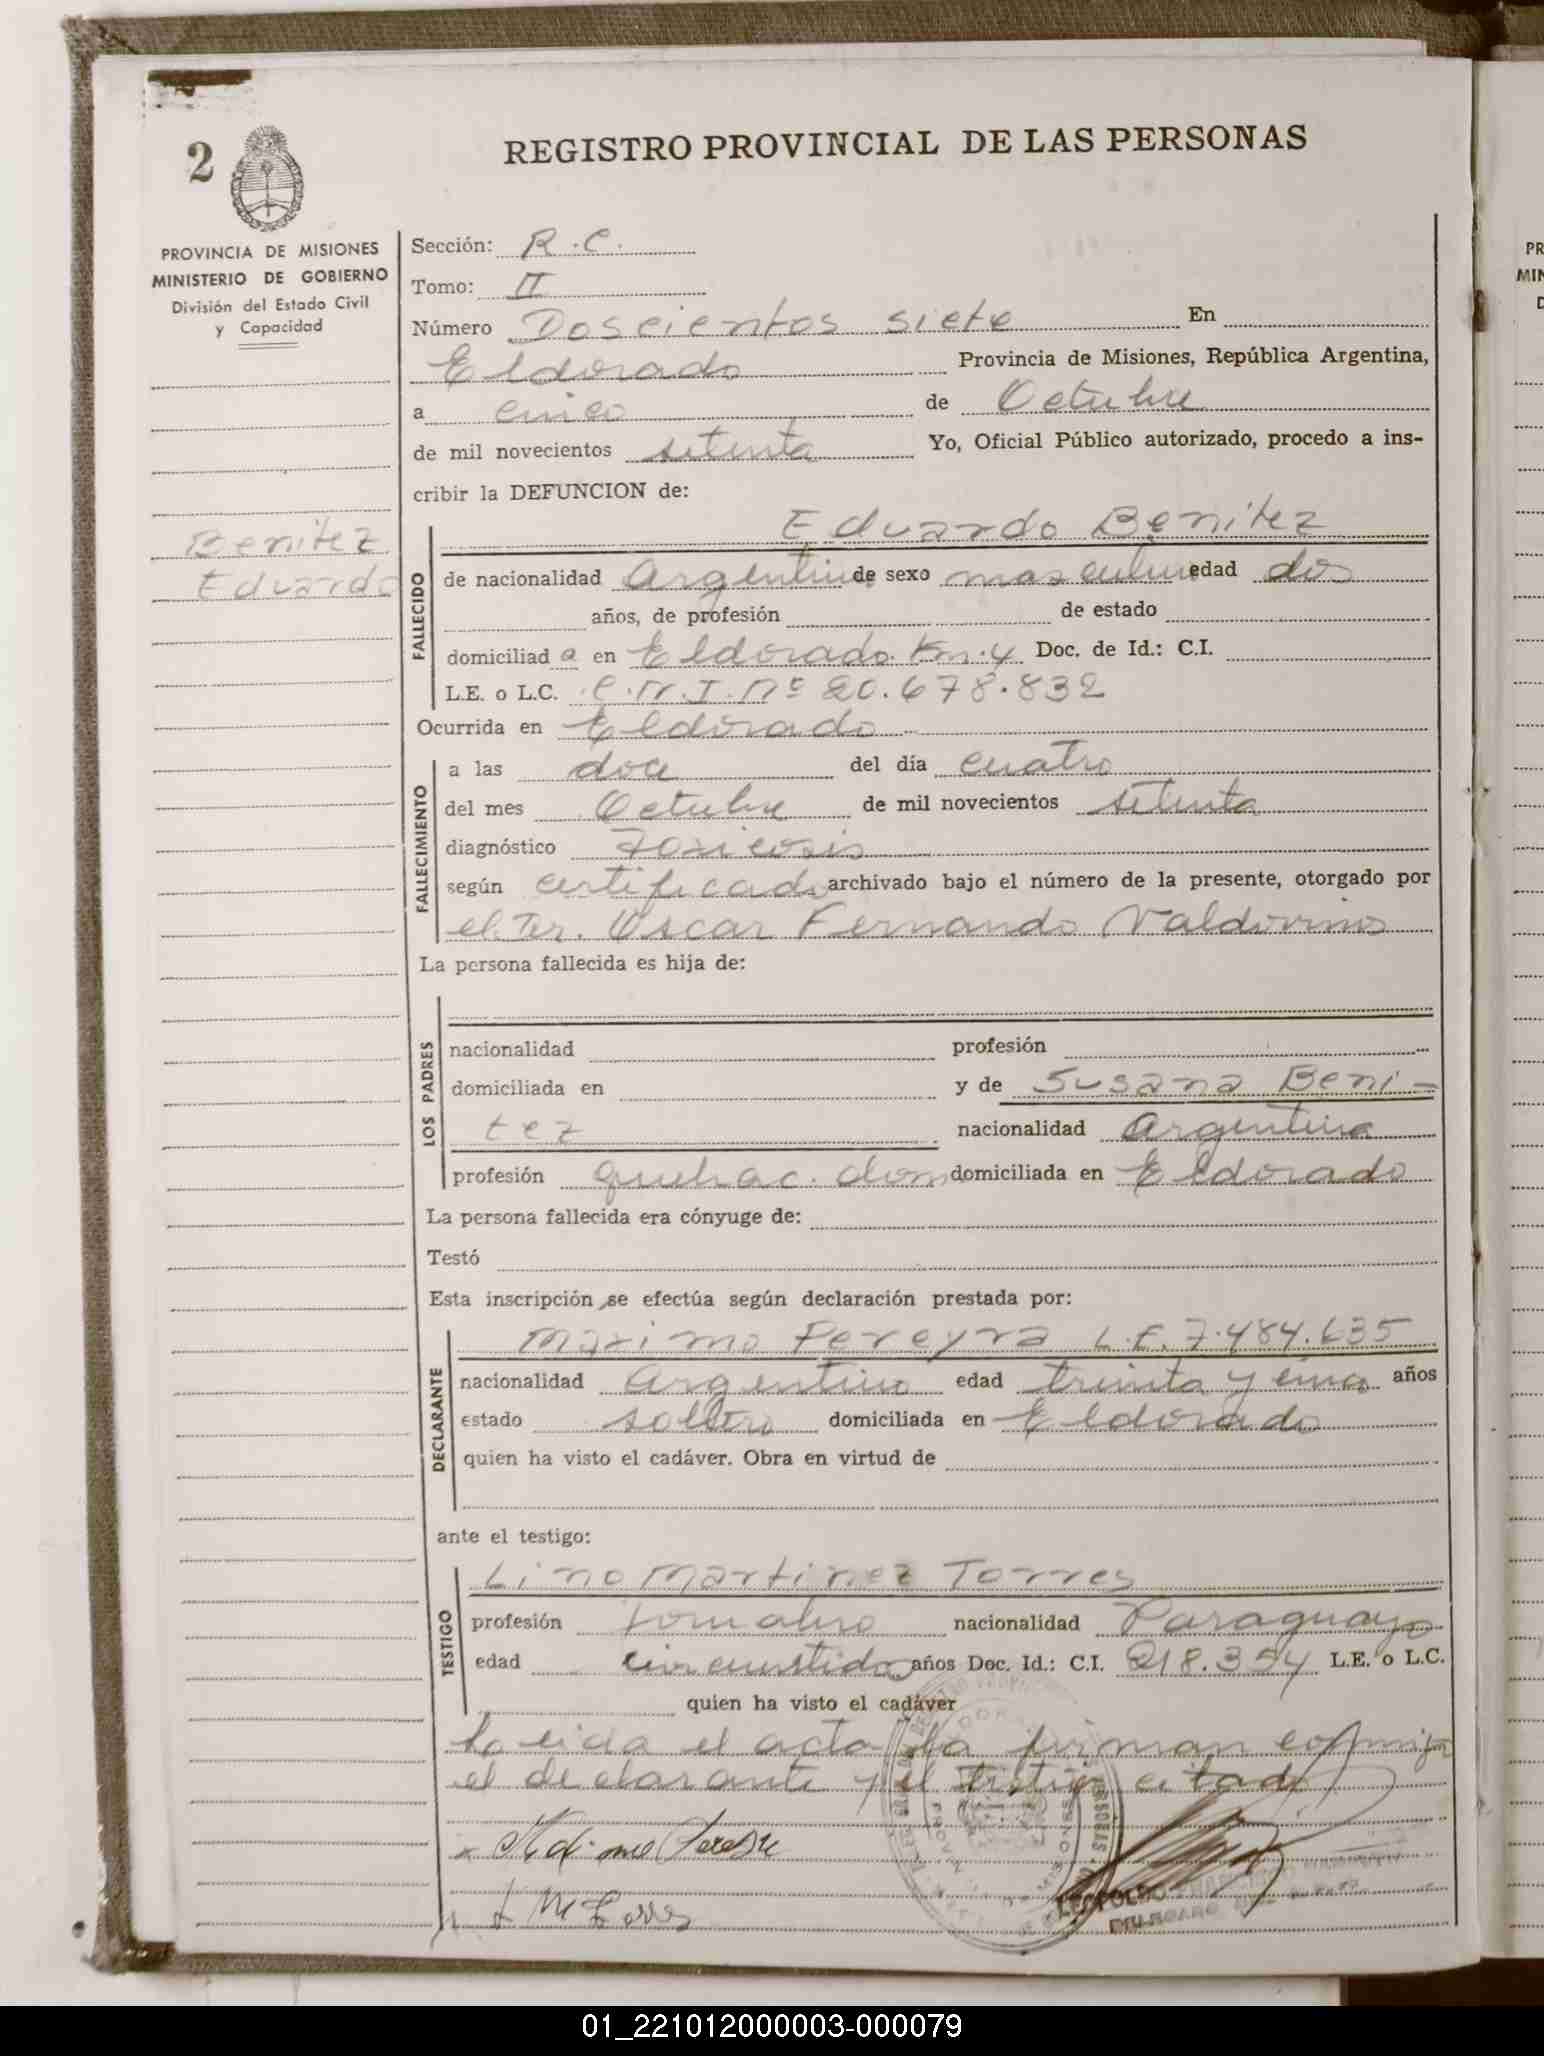 2
REGISTRO PROVINCIAL DE LAS PERSONAS
PROVINCIA DE MISIONES
MINISTERIO DE GOBIERNO
División del Estado Civil
y Capacidad
Sección: R.C.
Tomo: II
Número Doscientos siete En
Eldorado Provincia de Misiones, República Argentina,
a cinco de Octubre
de mil novecientos setenta Yo, Oficial Público autorizado, procedo a ins-
cribir la DEFUNCION de:
Benitez
Eduardo
FALLECIDO
Eduardo Benitez
de nacionalidad Argentina de sexo masculino edad dos
años, de profesión de estado
domiciliad a en Eldorado Km. 4 Doc. de Id.: C.I.
L.E. o L.C. C.N.I. Nº 20.678.832
Ocurrida en Eldorado
FALLECIMIENTO
a las doce del día cuatro
del mes Octubre de mil novecientos setenta
diagnóstico Toxicosis
según certificado archivado bajo el número de la presente, otorgado por
el Dr. Oscar Fernando Valdovino
La persona fallecida es hija de:
LOS PADRES
nacionalidad profesión
domiciliada en y de Susana Beni-
tez nacionalidad Argentina
profesión quehac. dom domiciliada en Eldorado
La persona fallecida era cónyuge de:
Testó
Esta inscripción se efectúa según declaración prestada por:
DECLARANTE
Maximo Pereyra L.E. 7.484.635
nacionalidad Argentino edad treinta y cinco años
estado soltero domiciliada en Eldorado
quien ha visto el cadáver. Obra en virtud de
ante el testigo:
TESTIGO
Lino Martinez Torres
profesión Jornalero nacionalidad Paraguayo
edad cincuentidos años Doc. Id.: C.I. 218.354 L.E. o L.C.
quien ha visto el cadáver
Leida el acta la firman conmigo
el declarante y el testigo citado
LEOPOLDO